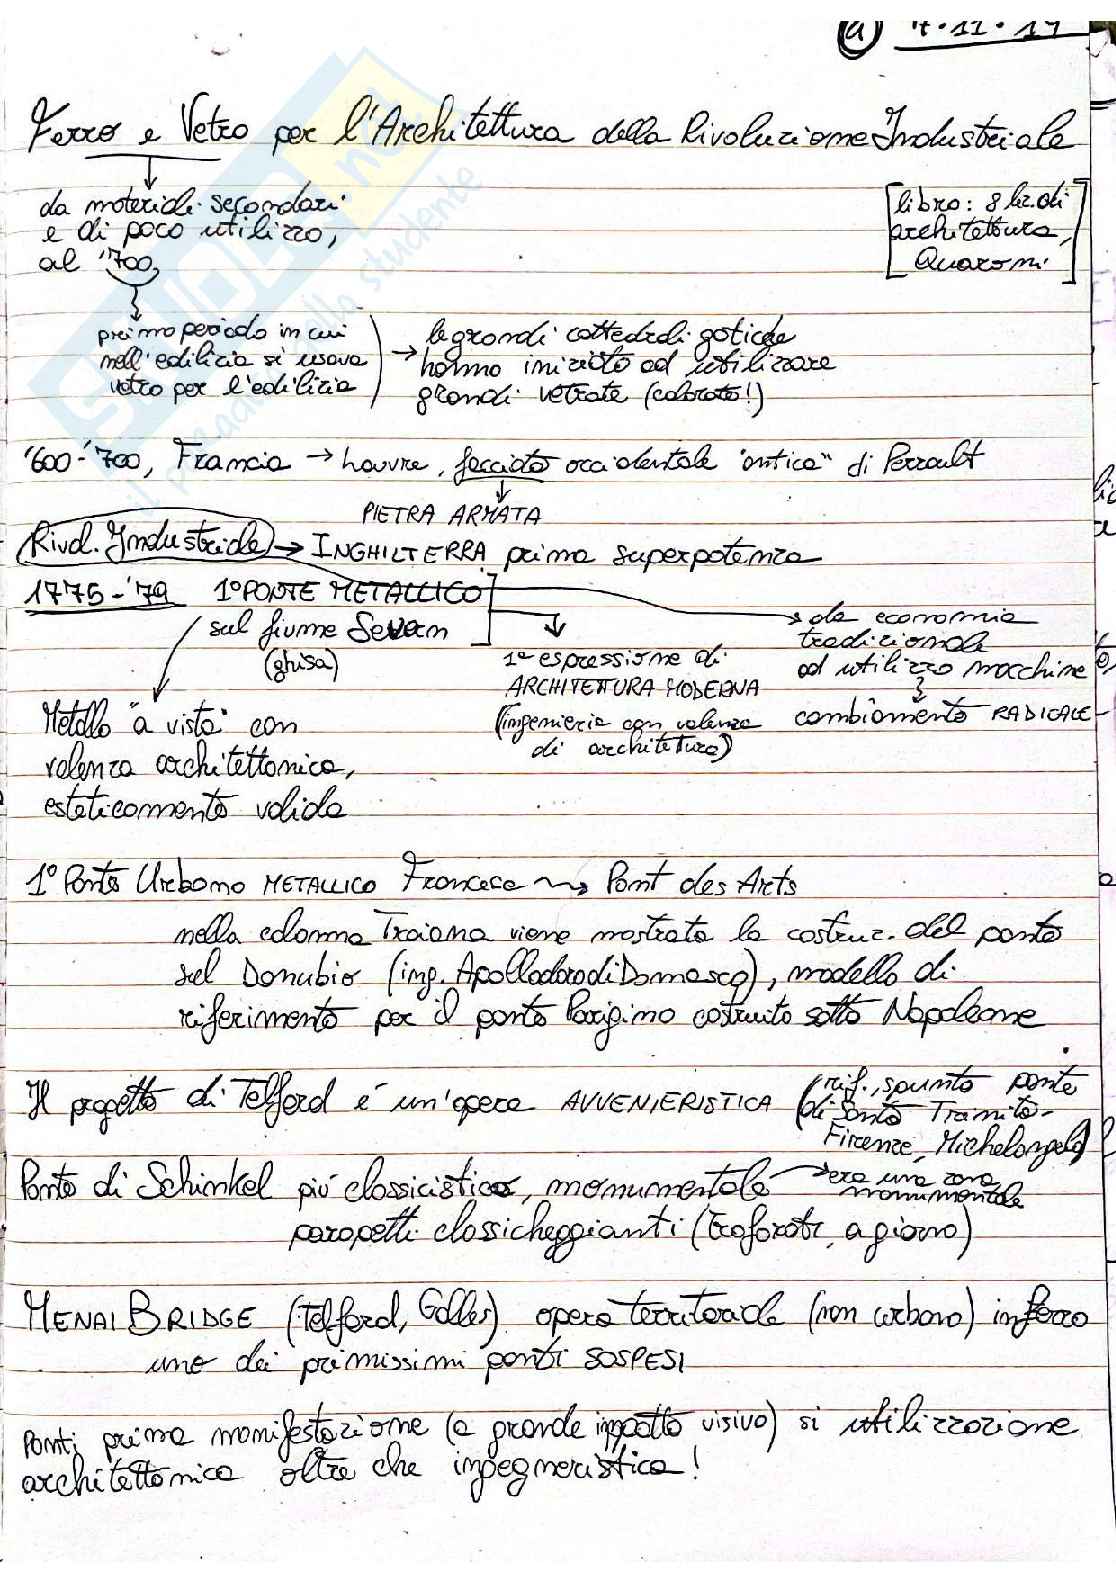 a 7.11.14
Ferro e Vetro per l'Architettura della Rivoluzione Industriale
da materiali secondari
e di poco utilizzo,
al '700,
[libro: 8 lez. di
architettura,
Quaroni]
primo periodo in cui
nell'edilizia si usava
vetro per l'edilizia
→ le grandi cattedrali gotiche
hanno iniziato ad utilizzare
grandi vetrate (colorate!)
'600-'700, Francia → Louvre, facciata occidentale "antica" di Perrault
PIETRA ARMATA
Rivol. Industriale → INGHILTERRA prima superpotenza
1775-'79 1° PONTE METALLICO
sul fiume Severn
(ghisa)
→ da economia
tradizionale
ad utilizzo macchine
cambiamento RADICALE
1ª espressione di
ARCHITETTURA MODERNA
(ingegneria con valenza
di architettura)
Metallo "a vista" con
valenza architettonica,
esteticamente valida
1° Ponte Urbano METALLICO Francese → Pont des Arts
nella colonna Traiana viene mostrata la costruz. del ponte
sul Danubio (ing. Apollodoro di Damasco), modello di
riferimento per il ponte Parigino costruito sotto Napoleone
Il progetto di Telford é un'opera AVVENIERISTICA (rif., spunto ponte
di Santa Trinita-
Firenze, Michelangelo)
Ponte di Schinkel piú classicistico, monumentale → era una zona
monumentale
parapetti classicheggianti (traforati, a giorno)
MENAI BRIDGE (Telford, Galles) opera territoriale (non urbana) in ferro
uno dei primissimi ponti SOSPESI
Ponti, prima manifestazione (a grande impatto visivo) si utilizzazione
architettonica oltre che ingegneristica!
SKUOLA.net
il paradiso dello studente